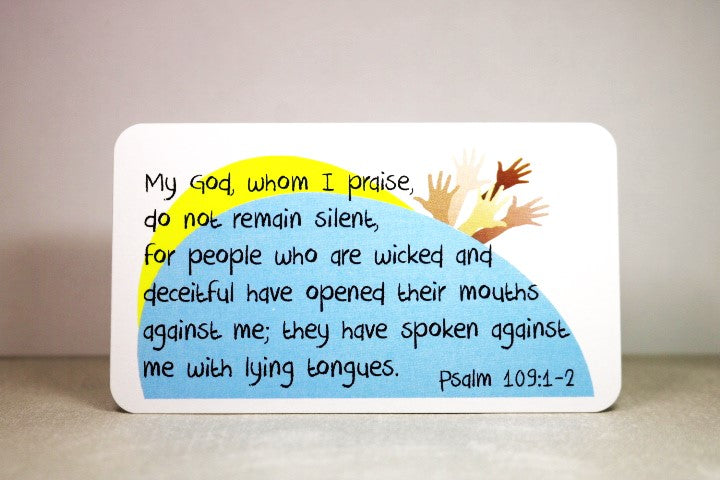 My God, whom I praise,
do not remain silent,
for people who are wicked and
deceitful have opened their mouths
against me; they have spoken against
me with lying tongues.
Psalm 109:1-2